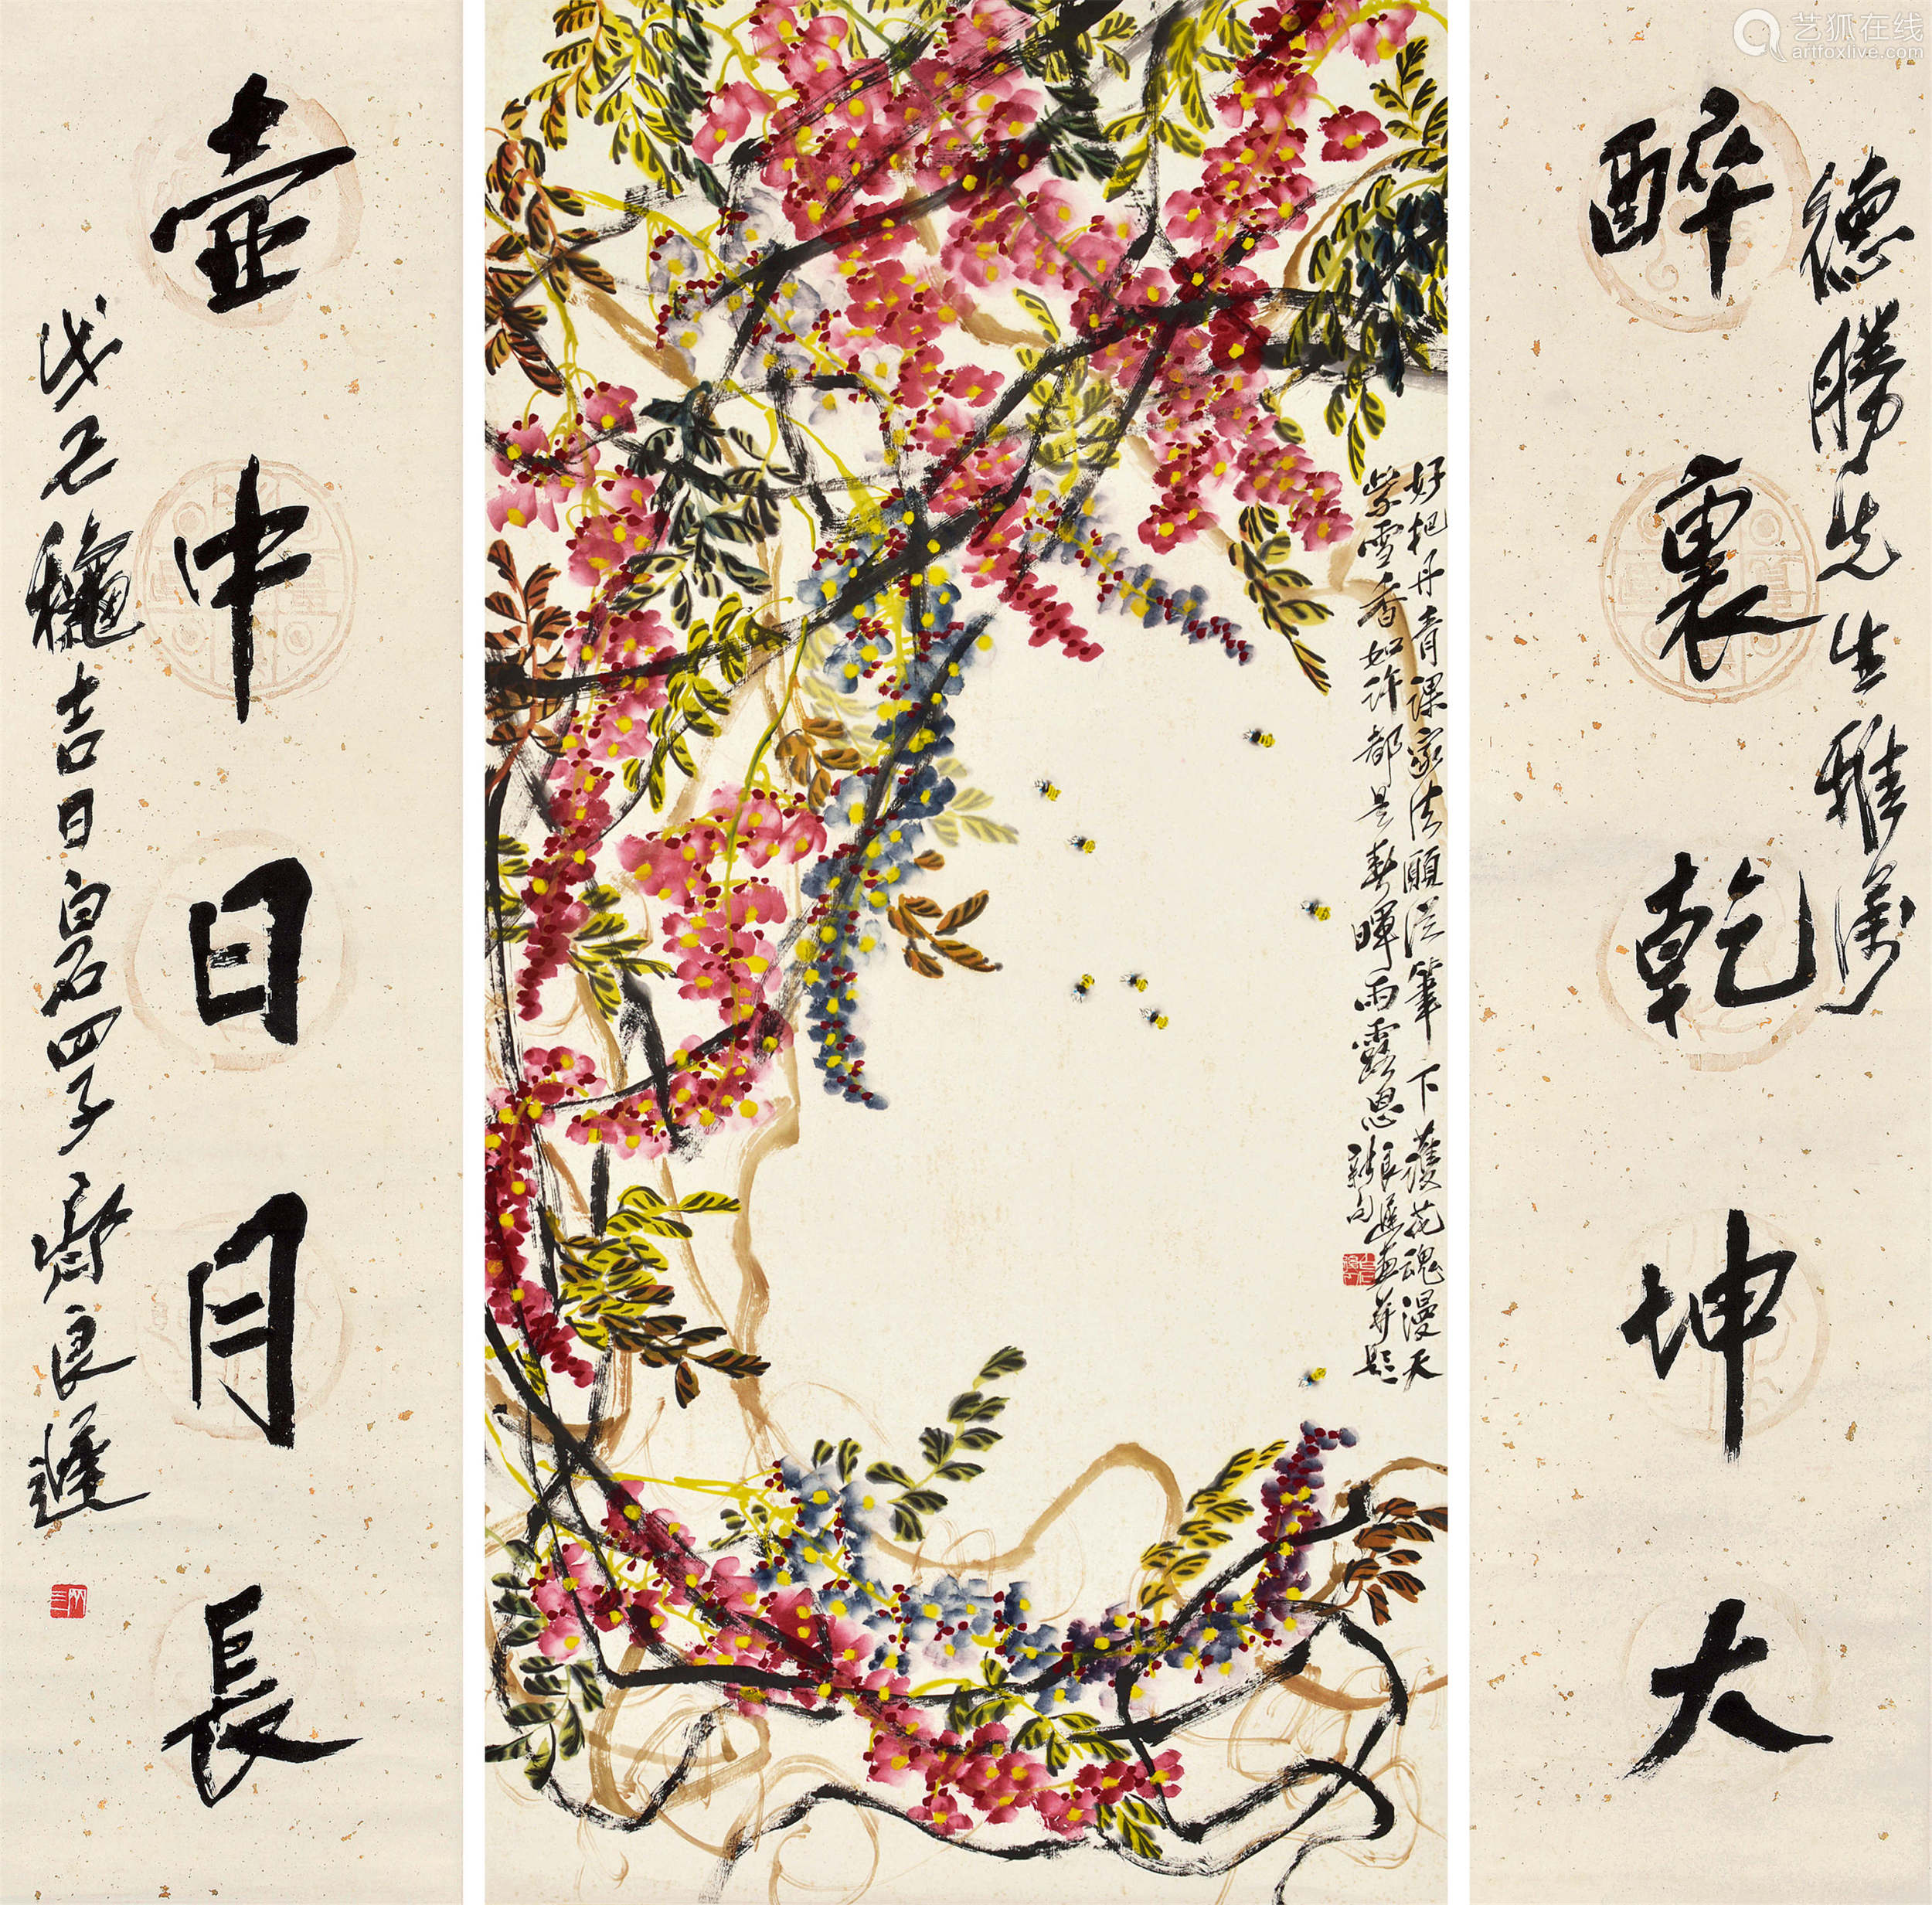 德勝先生雅
醉裏乾坤大
好把丹青課家法願從筆下護花魂漫天
紫雪香如許都是春暉雨露恩良遲畫并題
新句
壺中日月長
戊己穐吉日白石四子齊良遲
艺狐在线
artfoxlive.com